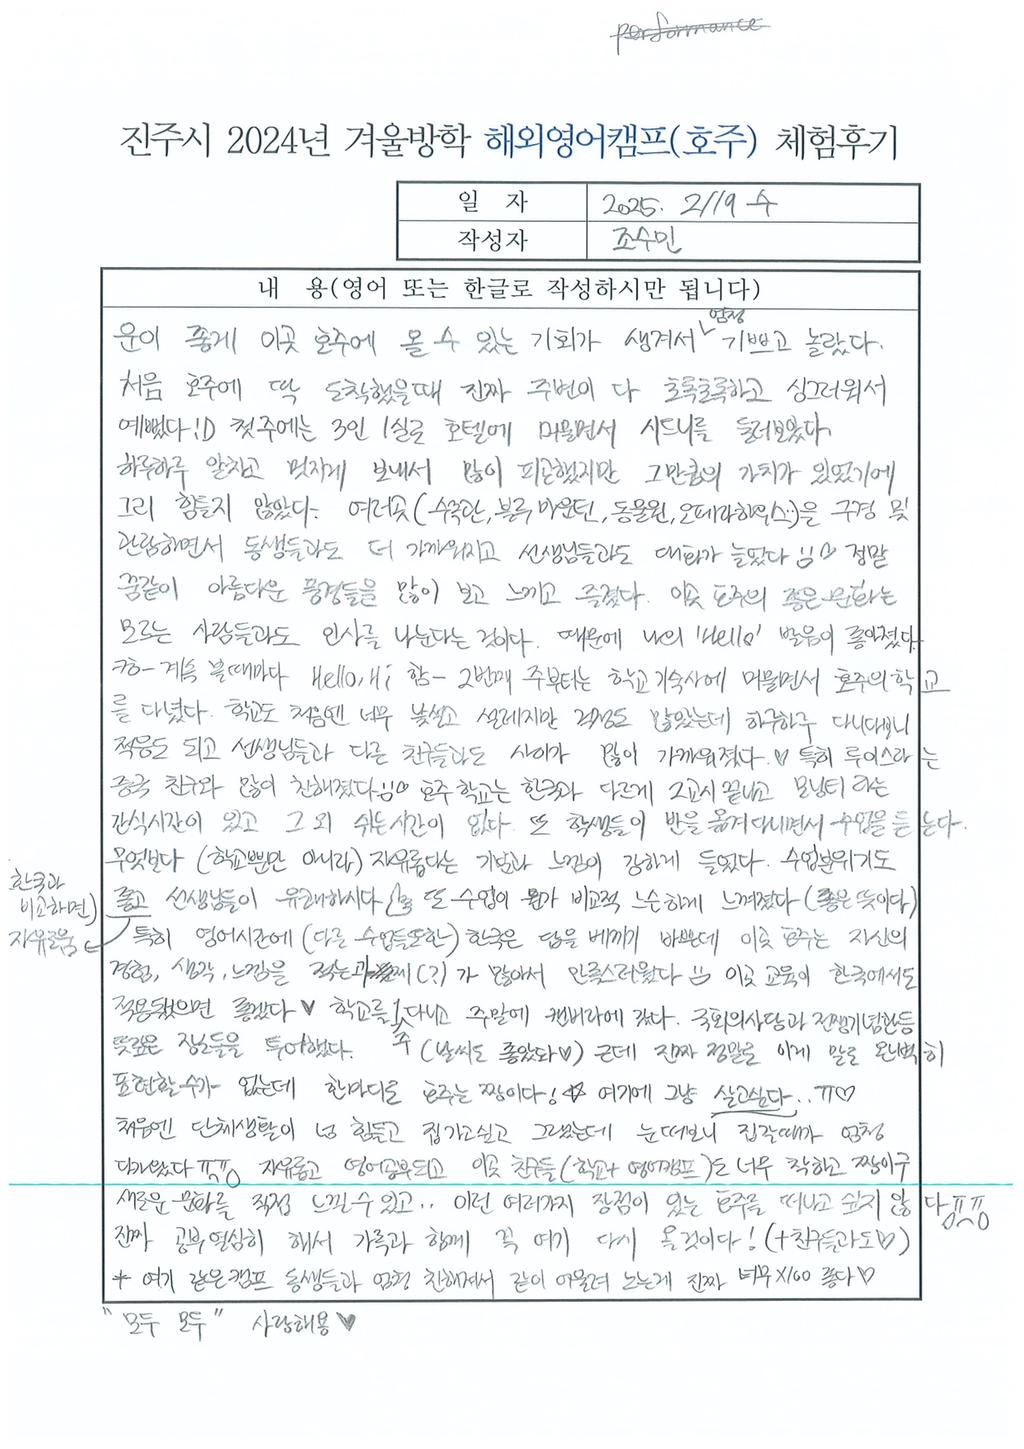 performance
진주시 2024년 겨울방학 해외영어캠프(호주) 체험후기
일 자 2025. 2/19 수
작성자 조수민
내 용(영어 또는 한글로 작성하시만 됩니다)
운이 좋게 이곳 호주에 올 수 있는 기회가 생겨서 엄청 기쁘고 놀랐다.
처음 호주에 딱 도착했을때 진짜 주변이 다 초록초록하고 싱그러워서
예뻤다!:D 첫주에는 3인 1실로 호텔에 머물면서 시드니를 둘러보았다.
하루하루 알차고 멋지게 보내서 많이 피곤했지만 그만큼의 가치가 있었기에
그리 힘들지 않았다. 여러곳(수족관,블루마운틴,동물원,오페라하우스..)을 구경 및
관람하면서 동생들과도 더 가까워지고 선생님들과도 대화가 늘었다 ♡ 정말
꿈같이 아름다운 풍경들을 많이 보고 느끼고 즐겼다. 이곳 호주의 좋은 문화는
모르는 사람들과도 인사를 나눈다는 것이다. 때문에 나의 'Hello' 발음이 좋아졌다.
계속 볼때마다 Hello, Hi 함- 2번째 주부터는 학교 기숙사에 머물면서 호주의 학교
를 다녔다. 학교도 처음엔 너무 낯설고 설레지만 걱정도 많았는데 하루하루 다니다보니
적응도 되고 선생님들과 다른 친구들과도 사이가 많이 가까워졌다.♡ 특히 루이스라는
중국 친구와 많이 친해졌다 ♡ 호주 학교는 한국과 다르게 2교시 끝나고 모닝티 라는
간식시간이 있고 그 외 쉬는시간이 없다. 또 학생들이 반을 옮겨다니면서 수업을 듣는다.
무엇보다 (학교뿐만 아니라) 자유롭다는 기분과 느낌이 강하게 들었다. 수업분위기도
한국과 비교하면) 자유로움
좋고 선생님들이 유쾌하시다 또 수업이 뭔가 비교적 느슨하게 느껴졌다 (좋은 뜻이다)
특히 영어시간에 (다른 수업들또한) 한국은 답을 베끼기 바쁜데 이곳 호주는 자신의
경험, 생각, 느낌을 적는 과제(?)가 많아서 만족스러웠다 이곳 교육이 한국에서도
적용됐으면 좋겠다 ♥ 학교를 1주 다니고 주말에 캔버라에 갔다. 국회의사당과 전쟁기념관등
뜻깊은 장소들을 투어했다. (날씨도 좋았다♡) 근데 진짜 정말로 이게 말로 완벽히
표현할 수가 없는데 한마디로 호주는 짱이다!☆ 여기에 그냥 살고싶다..ㅠ♡
처음엔 단체생활이 넘 힘들고 집가고싶고 그랬는데 눈떠보니 집갈때가 엄청
다가왔다ㅠㅠ 자유롭고 영어공부되고 이곳 친구들(학교+영어캠프)도 너무 착하고 짱이구
새로운 문화를 직접 느낄수 있고.. 이런 여러가지 장점이 있는 호주를 떠나고 싶지 않다ㅠㅠ
진짜 공부 열심히 해서 가족과 함께 꼭 여기 다시 올것이다! (+친구들과도♡)
* 여기 같은캠프 동생들과 엄청 친해져서 같이 어울려 노는게 진짜 너무X100 좋다♡
"모두 모두" 사랑해용♥